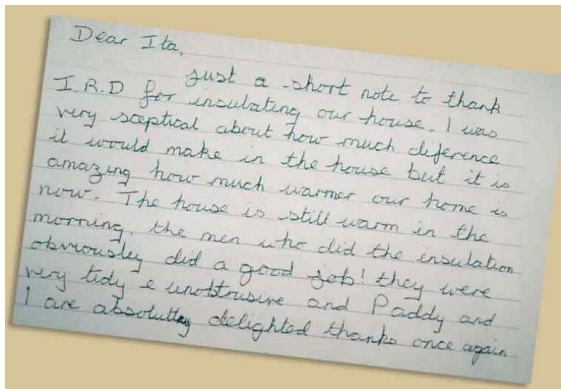 Dear Ita,
Just a short note to thank
I.R.D for insulating our house. I was
very sceptical about how much diference
it would make in the house but it is
amazing how much warmer our home is
now. The house is still warm in the
morning, the men who did the insulation
obviously did a good job! they were
very tidy & unobtrusive and Paddy and
I are absolutley delighted thanks once again